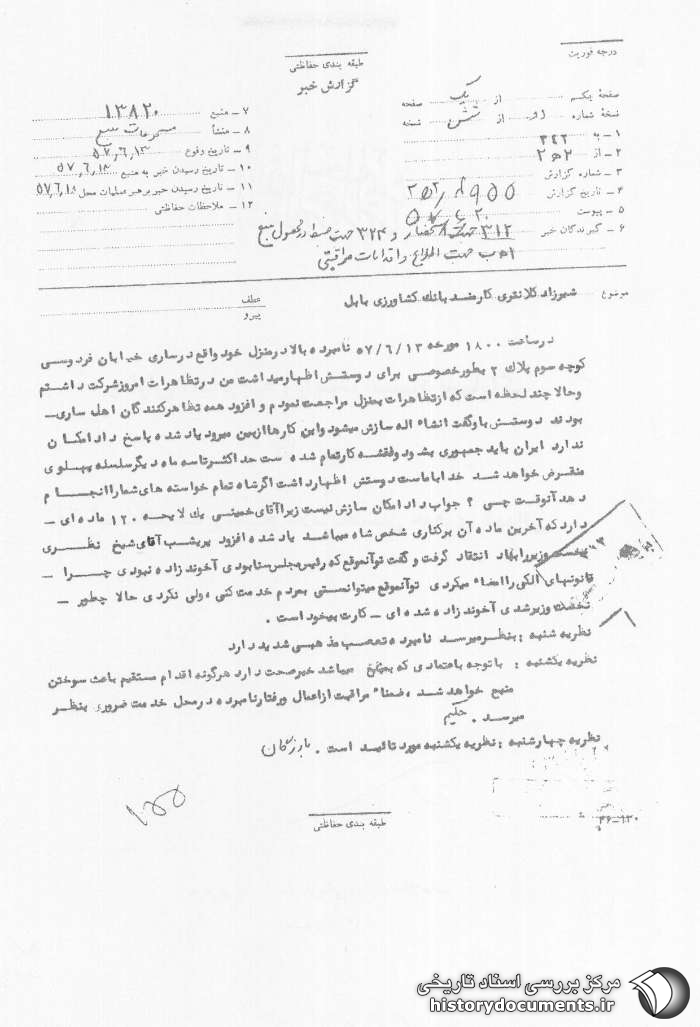 درجه فوریت
طبقه بندی حفاظتی
گزارش خبر
صفحهٔ یکم از یک صفحه
نسخهٔ شماره دو از شش نسخه
۱ ـ به ۳۴۲
۲ ـ از ۲ ه‍ ۲
۳ ـ شماره گزارش
۴ ـ تاریخ گزارش
۵ ـ پیوست
۶ ـ گیرندگان خبر
۷ ـ منبع ۱۳۸۲۰
۸ ـ منشأ مسموعات منبع
۹ ـ تاریخ وقوع ۵۷٫۶٫۱۳
۱۰ ـ تاریخ رسیدن خبر به منبع ۵۷٫۶٫۱۳
۱۱ ـ تاریخ رسیدن خبر برهبر عملیات محل ۵۷٫۶٫۱۸
۱۲ ـ ملاحظات حفاظتی
موضوع شیرزاد کلانتری کارمند بانک کشاورزی بابل
عطف
پیرو
در ساعت ۱۸۰۰ مورخه ۵۷/۶/۱۳ نامبرده بالا در منزل خود واقع در ساری خیابان فردوسی
کوچه سوم پلاک ۲ بطور خصوصی برای دوستش اظهار میداشت من در تظاهرات امروز شرکت داشتم
وحالا چند لحظه است که از تظاهرات بمنزل مراجعت نمودم و افزود همه تظاهرکنندگان اهل ساری ـ
بودند دوستش باو گفت انشاء اله سازش میشود واین کارها از بین میرود یاد شده پاسخ داد امکان
ندارد ایران باید جمهوری بشود وقضیه کار تمام شده ست حداکثر تا سه ماه دیگر سلسله پهلوی
منقرض خواهد شد خدا با ماست دوستش اظهار داشت اگر شاه تمام خواسته های شما را انجام
دهد آنوقت چی ؟ جواب داد امکان سازش نیست زیرا آقای خمینی یک لایحه ۱۲۰ ماده ای ـ
دارد که آخرین ماده آن برکناری شخص شاه میباشد یاد شده افزود پریشب آقای شیخ نظری
نخست وزیر را بباد انتقاد گرفت و گفت تو آنموقع که رئیس مجلس سنا بودی آخوند زاده نبودی چرا ـ
قانونهای الکی را امضاء میکردی تو آنموقع میتوانستی بمردم خدمت کنی ، ولی نکردی حالا چطور ـ
نخست وزیر شدی آخوند زاده شده ای ـ کارت بیخود است .
نظریه شنبه : بنظر میرسد نامبرده تعصب مذهبی شدید دارد
نظریه یکشنبه : با توجه باعتمادی که بمنبع میباشد خبر صحت دارد هرگونه اقدام مستقیم باعث سوختن
منبع خواهد شد ، ضمناً مراقبت از اعمال ورفتار نامبرده در محل خدمت ضروری بنظر
میرسد . حکیم
نظریه چهارشنبه : نظریه یکشنبه مورد تائید است .
طبقه بندی حفاظتی
مرکز بررسی اسناد تاریخی
historydocuments.ir